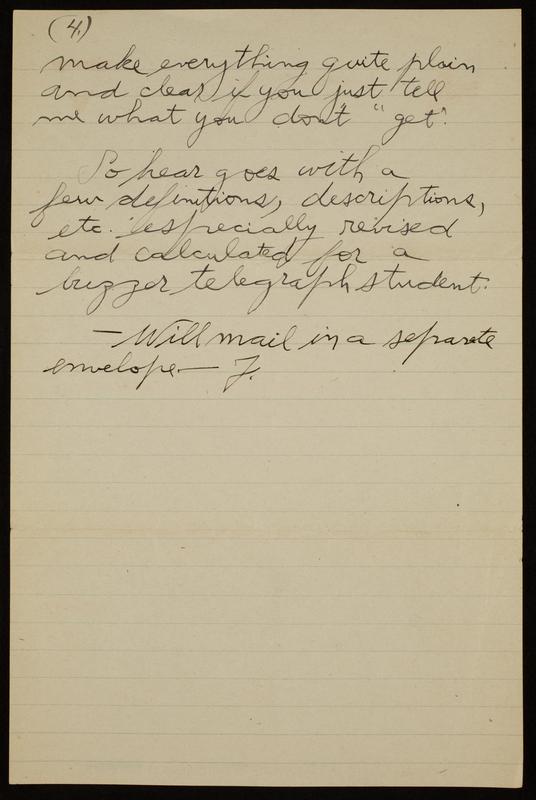 (4.)
make everything quite plain
and clear if you just tell
me what you don't "get".
So hear goes with a
few definitions, descriptions,
etc. especially revised
and calculated for a
buzzer telegraph student.
— Will mail in a separate
envelope — F.